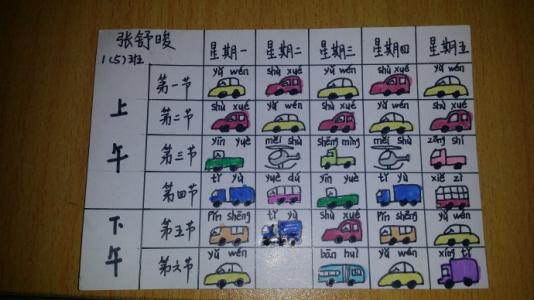 张舒晙 星期一 星期二 星期三 星期四 星期五
1(5)班
上午
第一节 yǔ wén shù xué yǔ wén shù xué yǔ wén
第二节 shù xué yǔ wén shù xué yǔ wén shù xué
第三节 yīn yuè měi shù shēng mìng měi shù zōng shí
第四节 tǐ yù yuè dú yīn yuè tǐ yù xiě zì
下午
第五节 pǐn shēng tǐ yù shù xué pǐn shēng yǔ wén
第六节 yǔ wén bān huì yǔ wén xíng tǐ